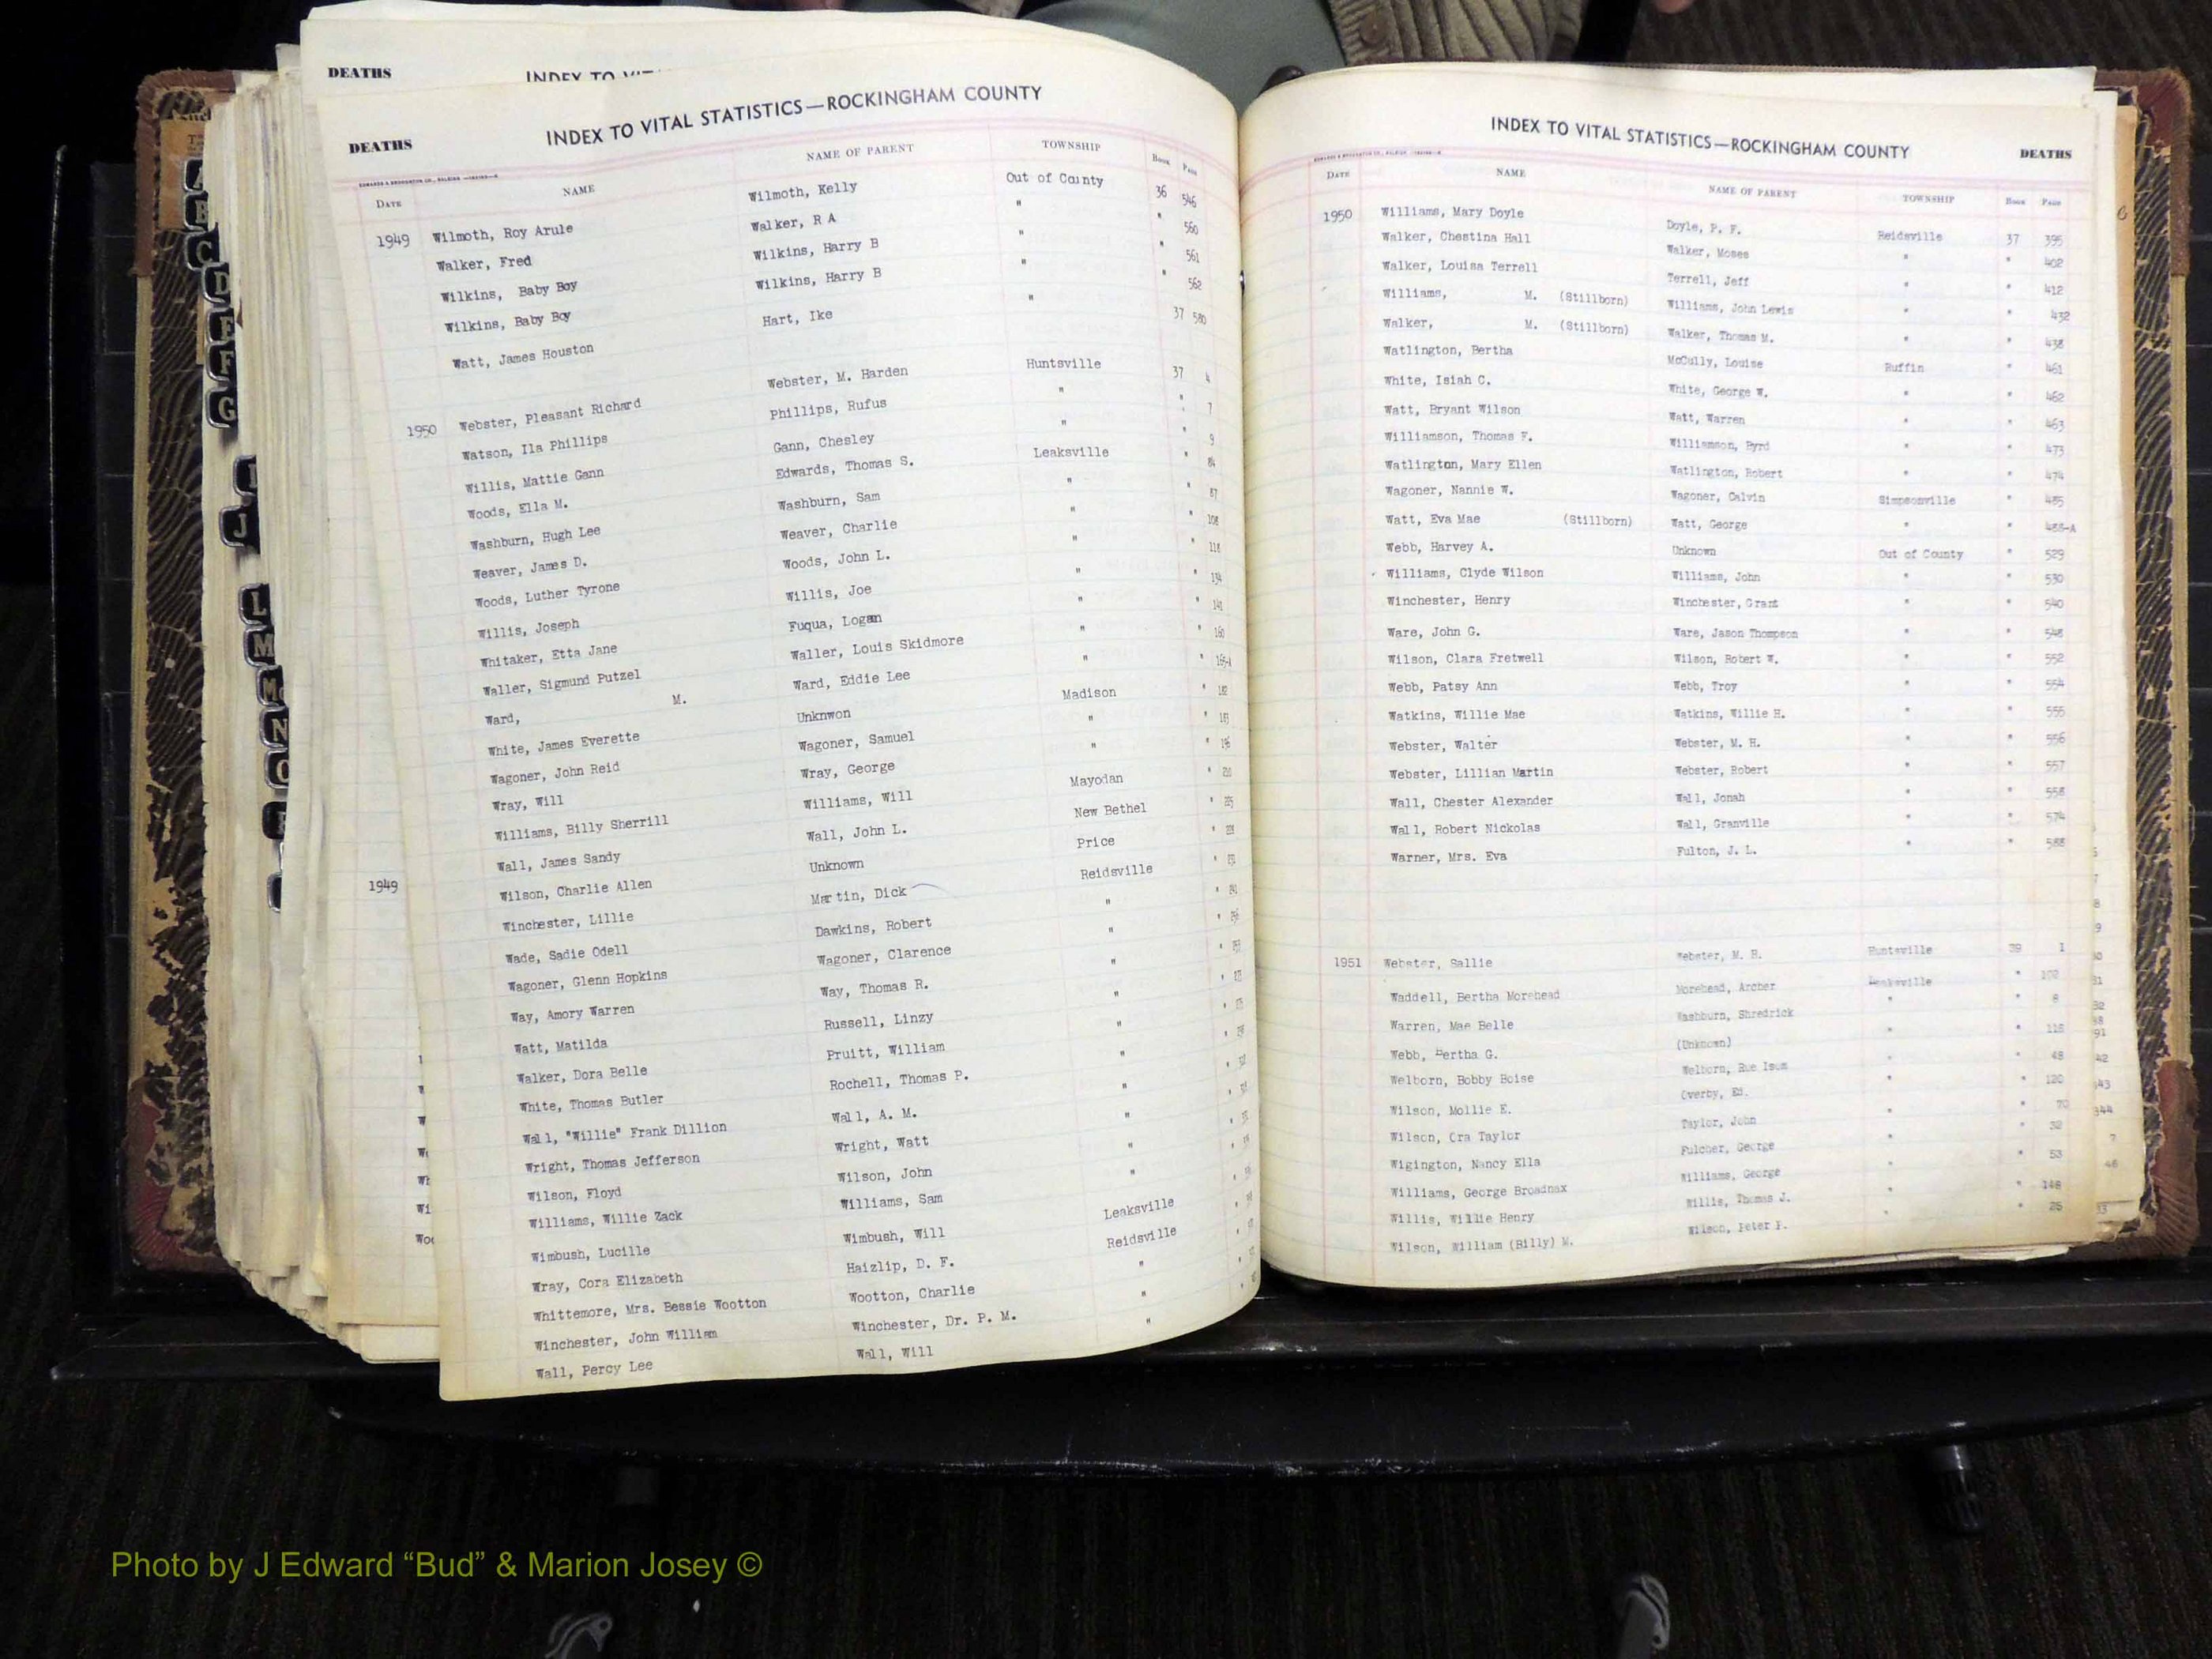 DEATHS
INDEX TO
DEATHS INDEX TO VITAL STATISTICS—ROCKINGHAM COUNTY
DATE NAME NAME OF PARENT TOWNSHIP BOOK PAGE
1949 Wilmoth, Roy Arule Wilmoth, Kelly Out of County 36 546
Walker, Fred Walker, R A " " 560
Wilkins, Baby Boy Wilkins, Harry B " " 561
Wilkins, Baby Boy Wilkins, Harry B " " 562
Watt, James Houston Hart, Ike " 37 580
1950 Webster, Pleasant Richard Webster, M. Harden Huntsville 37 4
Watson, Ila Phillips Phillips, Rufus " " 7
Willis, Mattie Gann Gann, Chesley " " 9
Woods, Ella M. Edwards, Thomas S. Leaksville " 84
Washburn, Hugh Lee Washburn, Sam " " 87
Weaver, James D. Weaver, Charlie " " 108
Woods, Luther Tyrone Woods, John L. " " 118
Willis, Joseph Willis, Joe " " 134
Whitaker, Etta Jane Fuqua, Logan " " 141
Waller, Sigmund Putzel Waller, Louis Skidmore " " 160
Ward, M. Ward, Eddie Lee " "
White, James Everette Unknwon Madison " 182
Wagoner, John Reid Wagoner, Samuel " " 183
Wray, Will Wray, George " "
Williams, Billy Sherrill Williams, Will Mayodan "
Wall, James Sandy Wall, John L. New Bethel "
1949 Wilson, Charlie Allen Unknown Price "
Winchester, Lillie Martin, Dick Reidsville "
Wade, Sadie Odell Dawkins, Robert " "
Wagoner, Glenn Hopkins Wagoner, Clarence " "
Way, Amory Warren Way, Thomas R. " "
Watt, Matilda Russell, Linzy " "
Walker, Dora Belle Pruitt, William " "
White, Thomas Butler Rochell, Thomas P. " "
Wall, "Willie" Frank Dillion Wall, A. M. " "
Wright, Thomas Jefferson Wright, Watt " "
Wilson, Floyd Wilson, John " "
Williams, Willie Zack Williams, Sam " "
Wimbush, Lucille Wimbush, Will Leaksville "
Wray, Cora Elizabeth Haizlip, D. F. Reidsville "
Whittemore, Mrs. Bessie Wootton Wootton, Charlie " "
Winchester, John William Winchester, Dr. P. M. " "
Wall, Percy Lee Wall, Will " "
INDEX TO VITAL STATISTICS—ROCKINGHAM COUNTY DEATHS
DATE NAME NAME OF PARENT TOWNSHIP Book Page
1950 Williams, Mary Doyle Doyle, P. F. Reidsville 37 395
Walker, Chestina Hall Walker, Moses " " 402
Walker, Louisa Terrell Terrell, Jeff " " 412
Williams, M. (Stillborn) Williams, John Lewis " " 432
Walker, M. (Stillborn) Walker, Thomas M. " " 438
Watlington, Bertha McCully, Louise Ruffin " 461
White, Isiah C. White, George W. " " 462
Watt, Bryant Wilson Watt, Warren " " 463
Williamson, Thomas F. Williamson, Byrd " " 473
Watlington, Mary Ellen Watlington, Robert " " 474
Wagoner, Nannie W. Wagoner, Calvin Simpsonville " 485
Watt, Eva Mae (Stillborn) Watt, George " " 488-A
Webb, Harvey A. Unknown Out of County " 529
Williams, Clyde Wilson Williams, John " " 530
Winchester, Henry Winchester, Grant " " 540
Ware, John G. Ware, Jason Thompson " " 548
Wilson, Clara Fretwell Wilson, Robert W. " " 552
Webb, Patsy Ann Webb, Troy " " 554
Watkins, Willie Mae Watkins, Willie H. " " 555
Webster, Walter Webster, M. H. " " 556
Webster, Lillian Martin Webster, Robert " " 557
Wall, Chester Alexander Wall, Jonah " " 558
Wall, Robert Nickolas Wall, Granville " " 574
Warner, Mrs. Eva Fulton, J. L. " " 588
1951 Webster, Sallie Webster, M. H. Huntsville 39 1
Waddell, Bertha Morehead Morehead, Archer Leaksville " 102
Warren, Mae Belle Washburn, Shredrick " " 8
Webb, Bertha G. (Unknown) " " 118
Welborn, Bobby Boise Welborn, Rue Isom " 48
Wilson, Mollie E. Overby, Ed. " " 120
Wilson, Ora Taylor Taylor, John " " 70
Wigington, Nancy Ella Fulcher, George " " 32
Williams, George Broadnax Williams, George " " 53
Willis, Willie Henry Willis, Thomas J. " " 148
Wilson, William (Billy) M. Wilson, Peter P. " " 25
A
B
C
D
E
F
G
I
J
L
M
Mc
N
O
Photo by J Edward “Bud” & Marion Josey ©